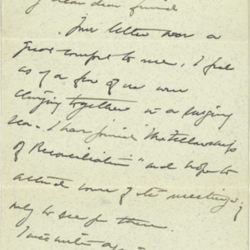 dear friend
Your letter was a
great comfort to me. I feel
as if a few of us were
clinging together in a surging
sea. I have joined the "Fellowship
of Reconciliation" and hope to
attend some of its meetings,
only to see for them.